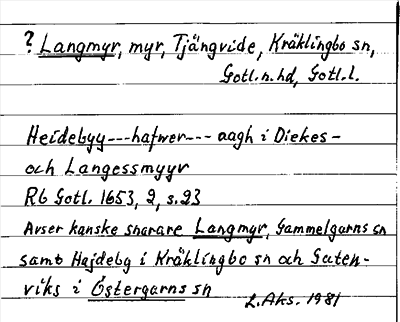 ? Langmyr, myr, Tjängvide, Kräklingbo sn,
Gotl.n.hd, Gotl.l.
Heidebyy---hafwer--- aagh i Diekes-
och Langessmyyr
Rb Gotl. 1653, 2, s.23
Avser kanske snarare Langmyr, Gammelgarns sn
samt Hajdeby i Kräklingbo sn och Guten-
viks i Östergarns sn
L.Aks. 1981